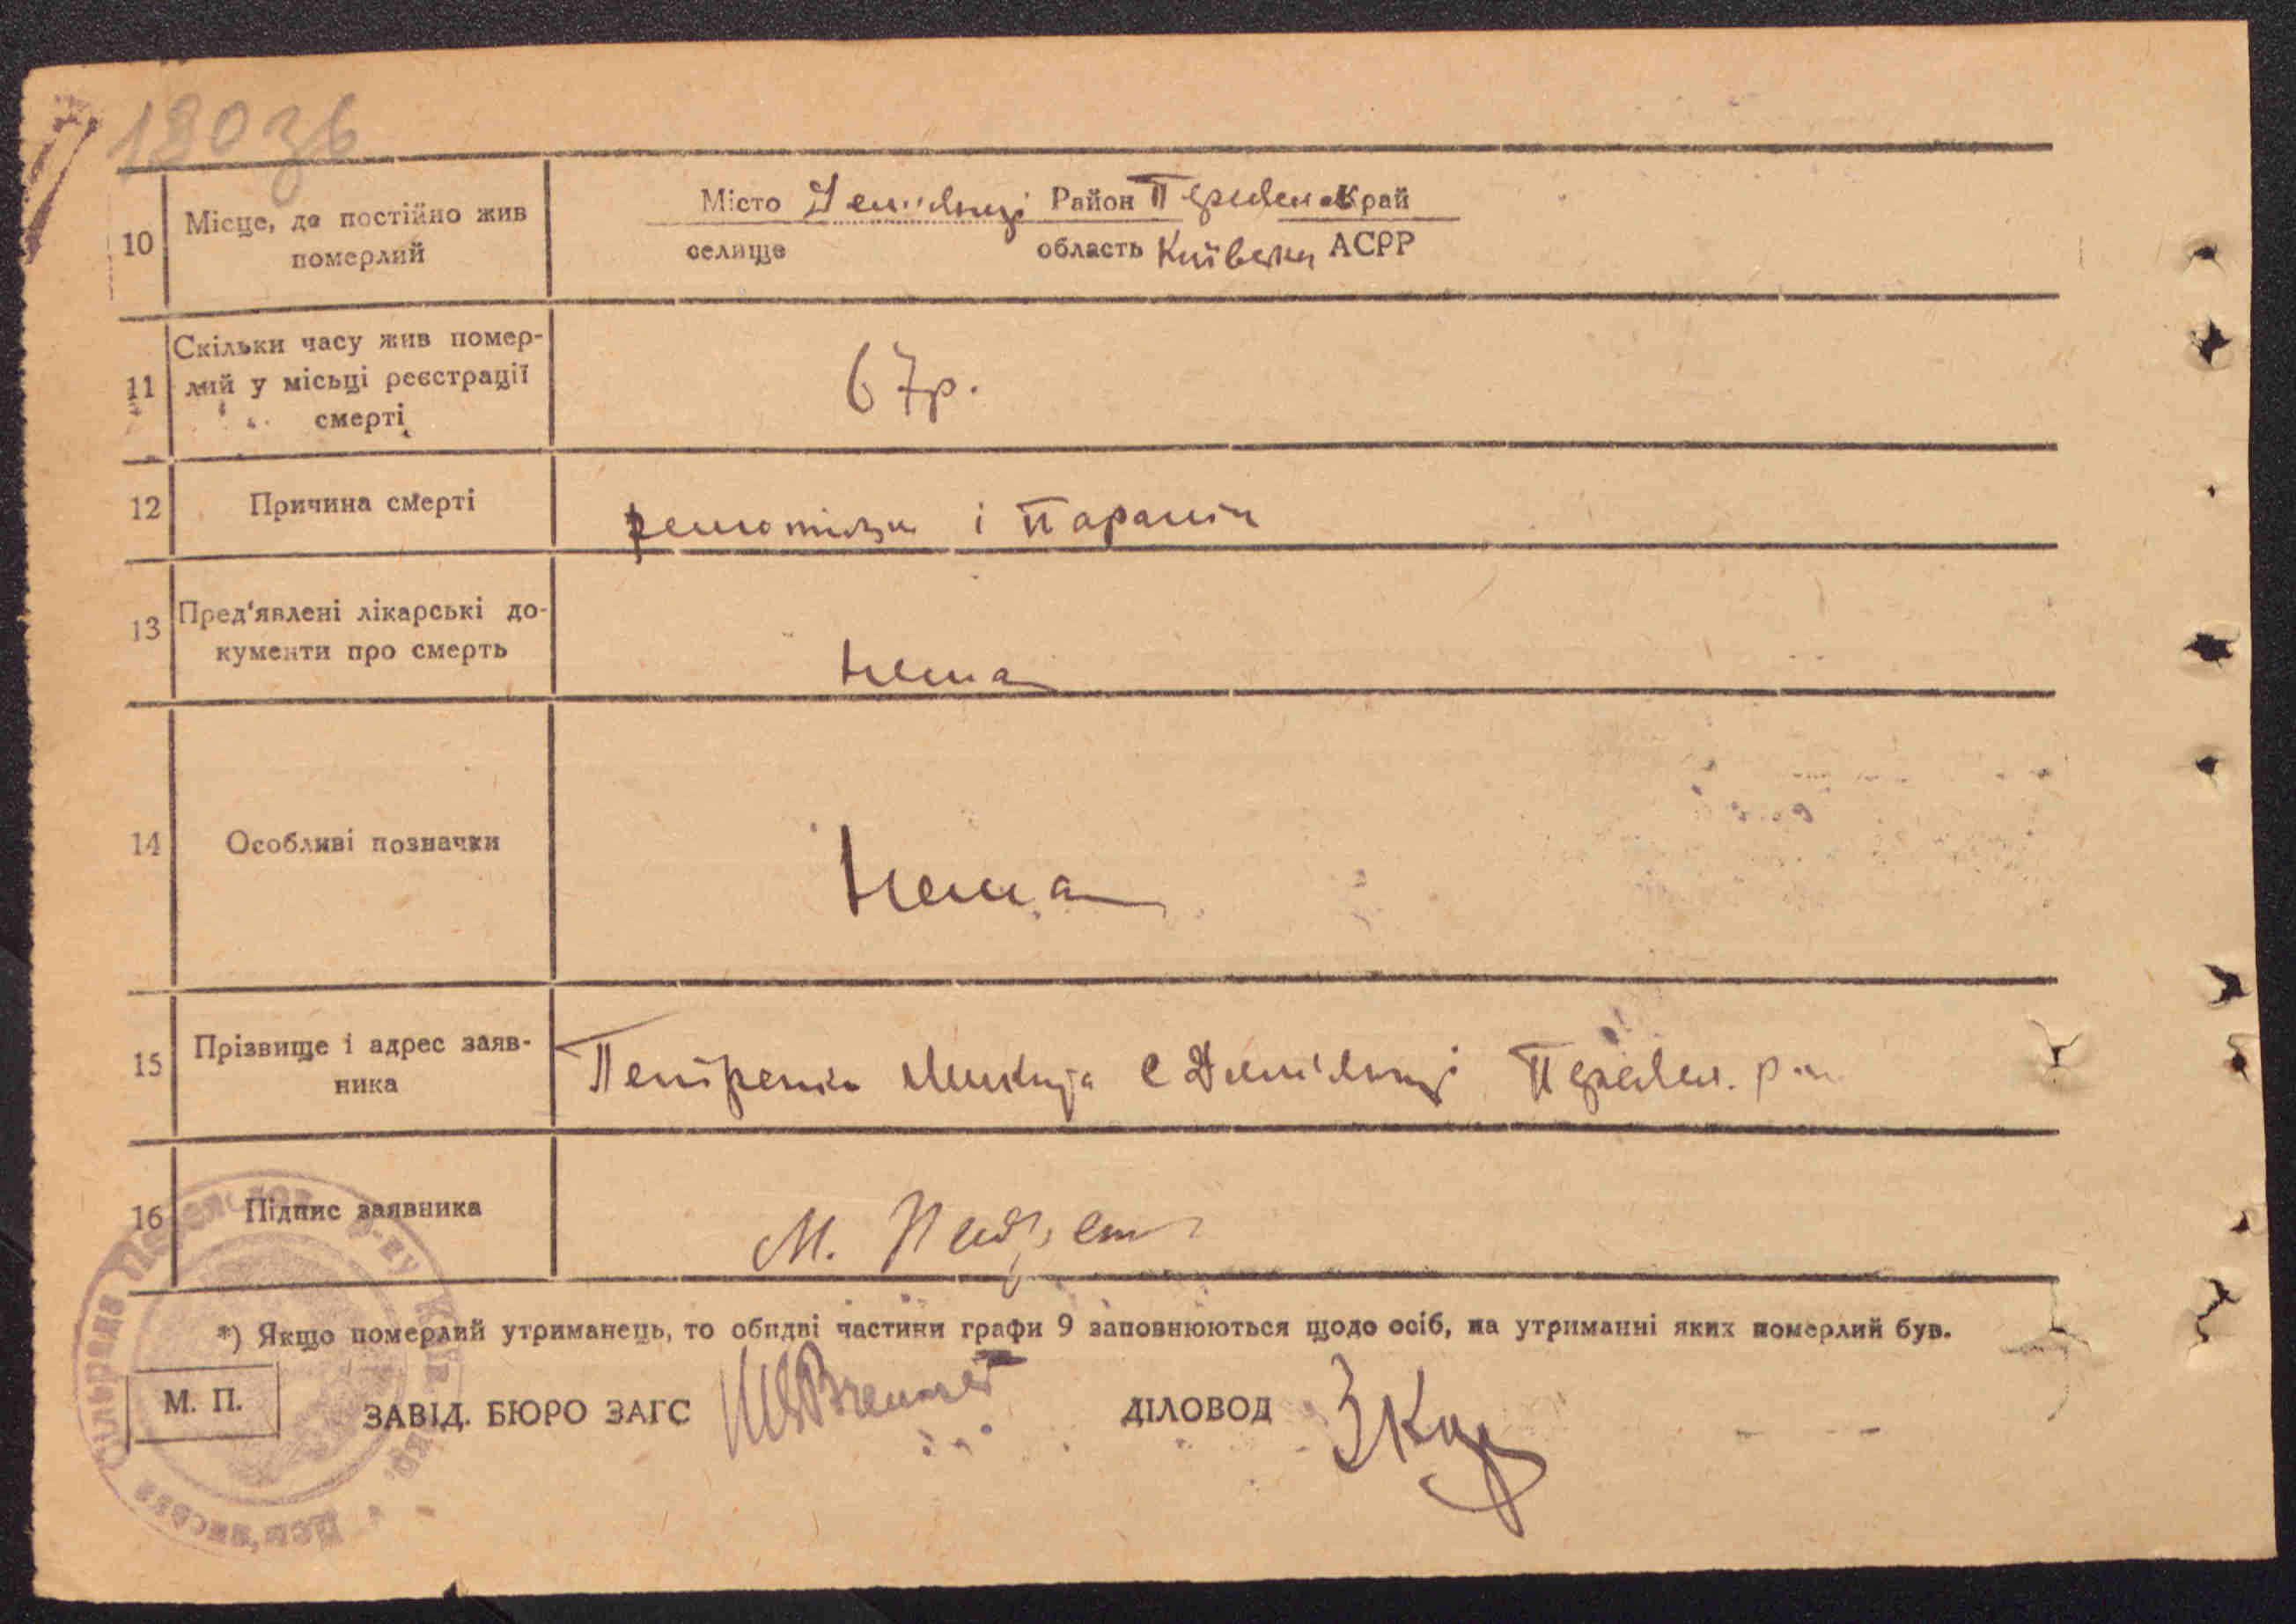 180 зв
10 Місце, де постійно жив померлий
Місто Демʼянці Район Переясл. Край
селище область Київська АСРР
11 Скільки часу жив помер-
лий у місьці реєстрації
смерті
67р.
12 Причина смерті
ревматизм і
13 Пред'явлені лікарські до-
кументи про смерть
нема
14 Особливі позначки
нема
15 Прізвище і адрес заяв-
ника
Петренко Микита с Демʼянці Переясл. р-н
16 Підпис заявника
М. Петренко
*) Якщо померлий утриманець, то обидві частини графи 9 заповнюються щодо осіб, на утриманні яких померлий був.
М. П. ЗАВІД. БЮРО ЗАГС ДІЛОВОД